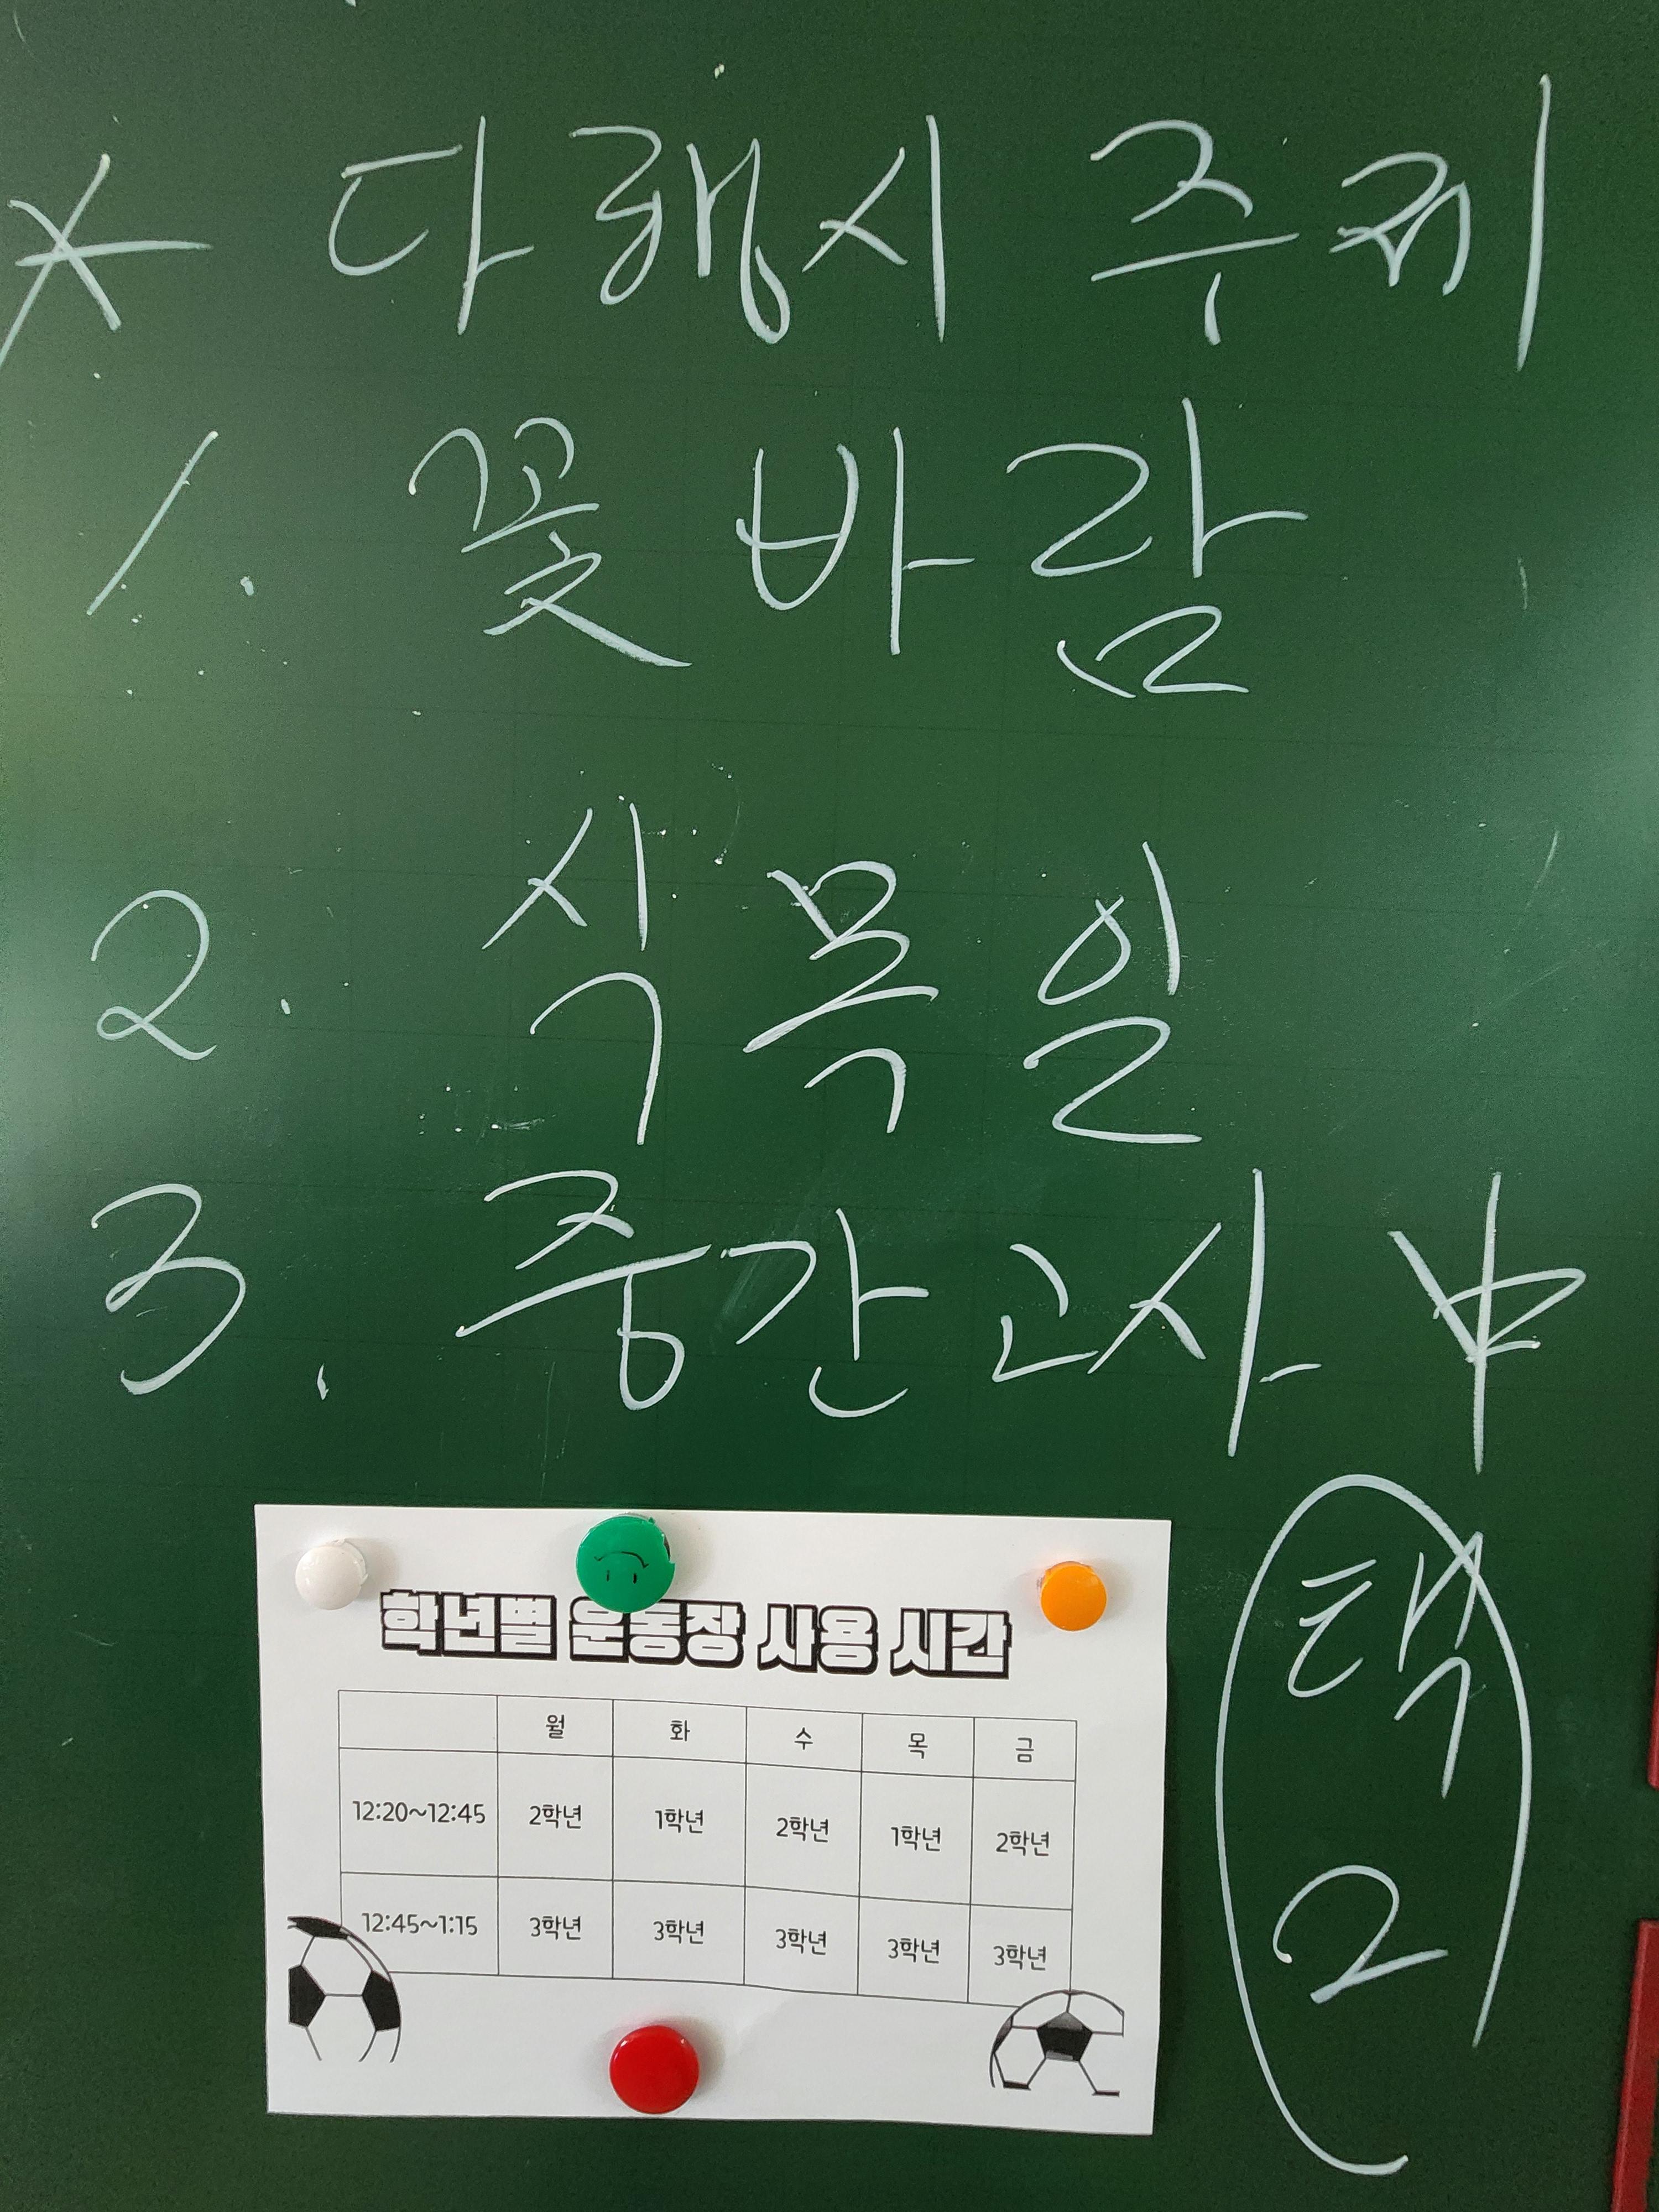 * 다행시 주제
1. 꽃바람
2. 식목일
3. 중간고사 中
택
2
학년별 운동장 사용 시간
월 화 수 목 금
12:20~12:45 2학년 1학년 2학년 1학년 2학년
12:45~1:15 3학년 3학년 3학년 3학년 3학년